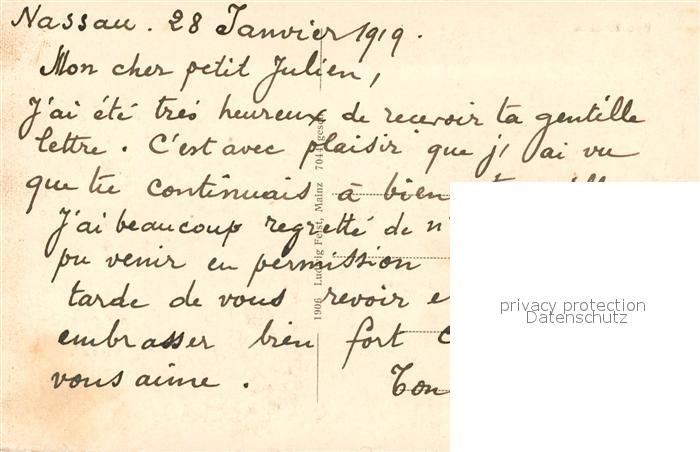 Nassau. 28 Janvier 1919.
Mon cher petit Julien,
J'ai été trés heureux de recevoir ta gentille
lettre. C'est avec plaisir que j'ai vu
que tu continuais à bien
J'ai beaucoup regretté de n'
pu venir en permission
tarde de vous revoir e
embrasser bien fort
vous aime.
Ton
1906 Ludwig Feist, Mainz 7044
privacy protection
Datenschutz